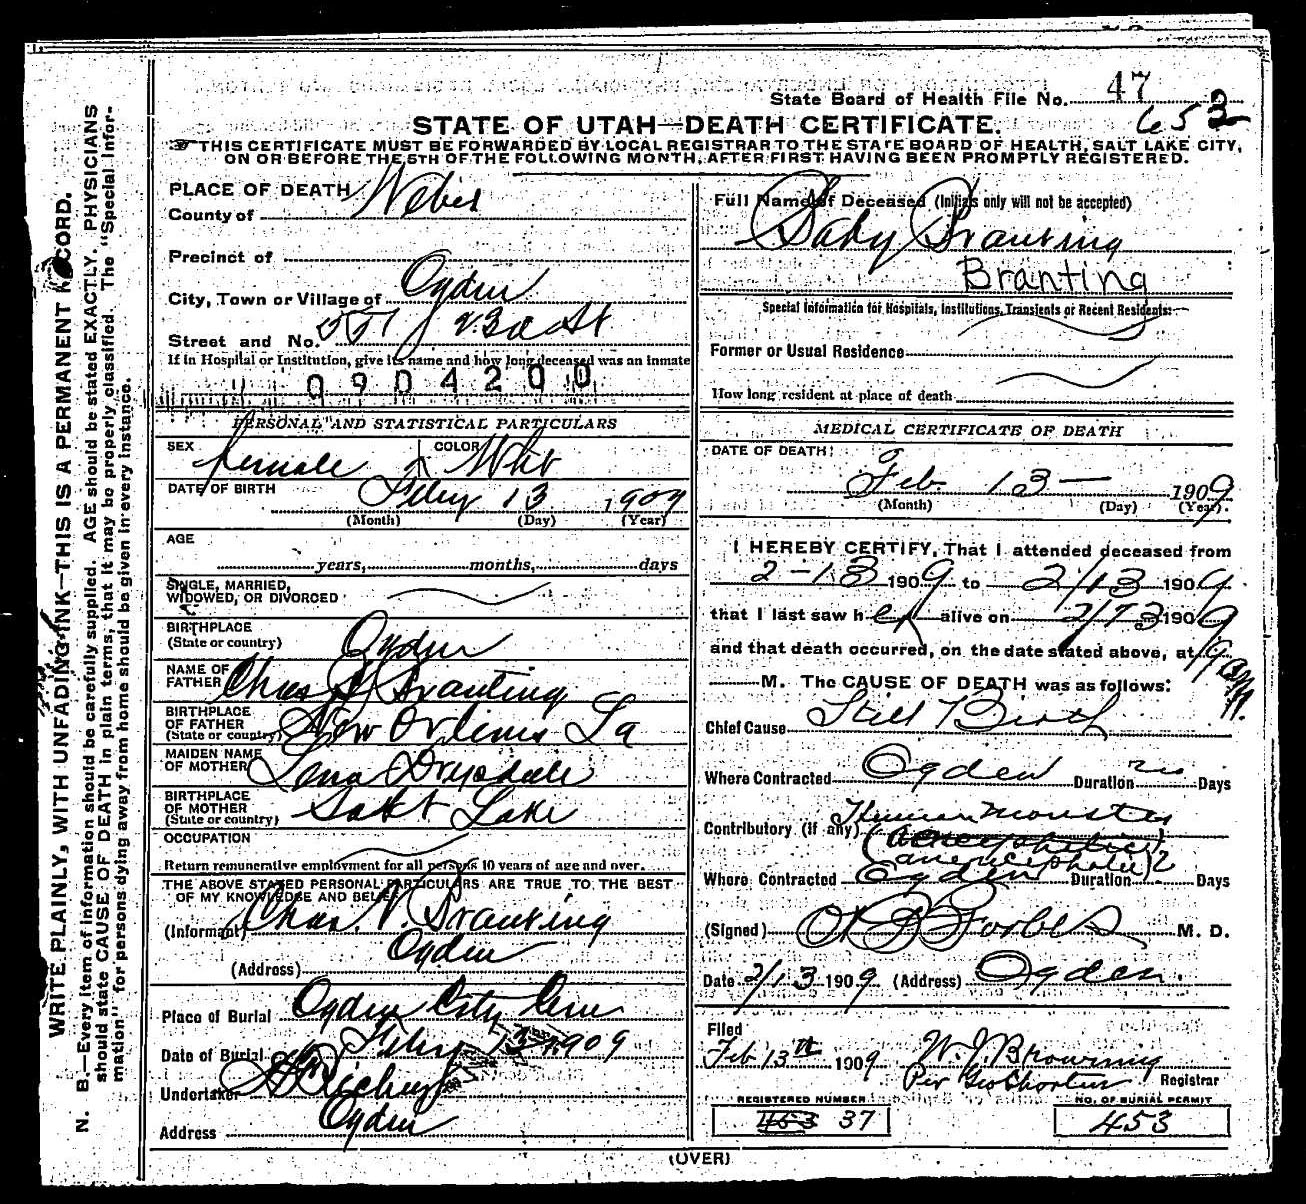 State Board of Health File No. 47
652
STATE OF UTAH—DEATH CERTIFICATE.
THIS CERTIFICATE MUST BE FORWARDED BY LOCAL REGISTRAR TO THE STATE BOARD OF HEALTH, SALT LAKE CITY,
ON OR BEFORE THE 5TH OF THE FOLLOWING MONTH, AFTER FIRST HAVING BEEN PROMPTLY REGISTERED.
WRITE PLAINLY, WITH UNFADING INK—THIS IS A PERMANENT RECORD.
N. B.—Every item of information should be carefully supplied. AGE should be stated EXACTLY. PHYSICIANS
should state CAUSE OF DEATH in plain terms, that it may be properly classified. The "Special Infor-
mation" for persons dying away from home should be given in every instance.
PLACE OF DEATH
County of Weber
Precinct of
City, Town or Village of Ogden
Street and No. 23d St
If in Hospital or Institution, give its name and how long deceased was an inmate
0904200
PERSONAL AND STATISTICAL PARTICULARS
SEX Female COLOR Whit
DATE OF BIRTH Feby 13 1909
(Month) (Day) (Year)
AGE
years, months, days
SINGLE, MARRIED,
WIDOWED, OR DIVORCED
BIRTHPLACE
(State or country) Ogden
NAME OF
FATHER Chas V Branting
BIRTHPLACE
OF FATHER
(State or country) New Orleans La
MAIDEN NAME
OF MOTHER Lena Drysdale
BIRTHPLACE
OF MOTHER
(State or country) Salt Lake
OCCUPATION
Return remunerative employment for all persons 10 years of age and over.
THE ABOVE STATED PERSONAL PARTICULARS ARE TRUE TO THE BEST
OF MY KNOWLEDGE AND BELIEF
(Informant) Chas. V. Branting
(Address) Ogden
Place of Burial Ogden City Cem
Date of Burial Feby 13 1909
Undertaker Richey
Address Ogden
Full Name of Deceased (Initials only will not be accepted)
Baby Branting
Branting
Special Information for Hospitals, Institutions, Transients or Recent Residents:
Former or Usual Residence
How long resident at place of death
MEDICAL CERTIFICATE OF DEATH
DATE OF DEATH:
Feb. 13— 1909
(Month) (Day) (Year).
I HEREBY CERTIFY, That I attended deceased from
2-13 1909 to 2/13 1909
that I last saw her alive on 2/13 1909
and that death occurred, on the date stated above, at 9 am
M. The CAUSE OF DEATH was as follows:
Chief Cause Still Birth
Where Contracted Ogden Duration Days
Contributory (if any) Human Monster
(anencephalic)
Where Contracted Ogden Duration Days
(Signed) M. D.
Date 2/13 1909 (Address) Ogden.
Filed
Feb 13th 1909 W. J. Browning
Per Geo Shorten Registrar
REGISTERED NUMBER NO. OF BURIAL PERMIT
453 37 453
(OVER)